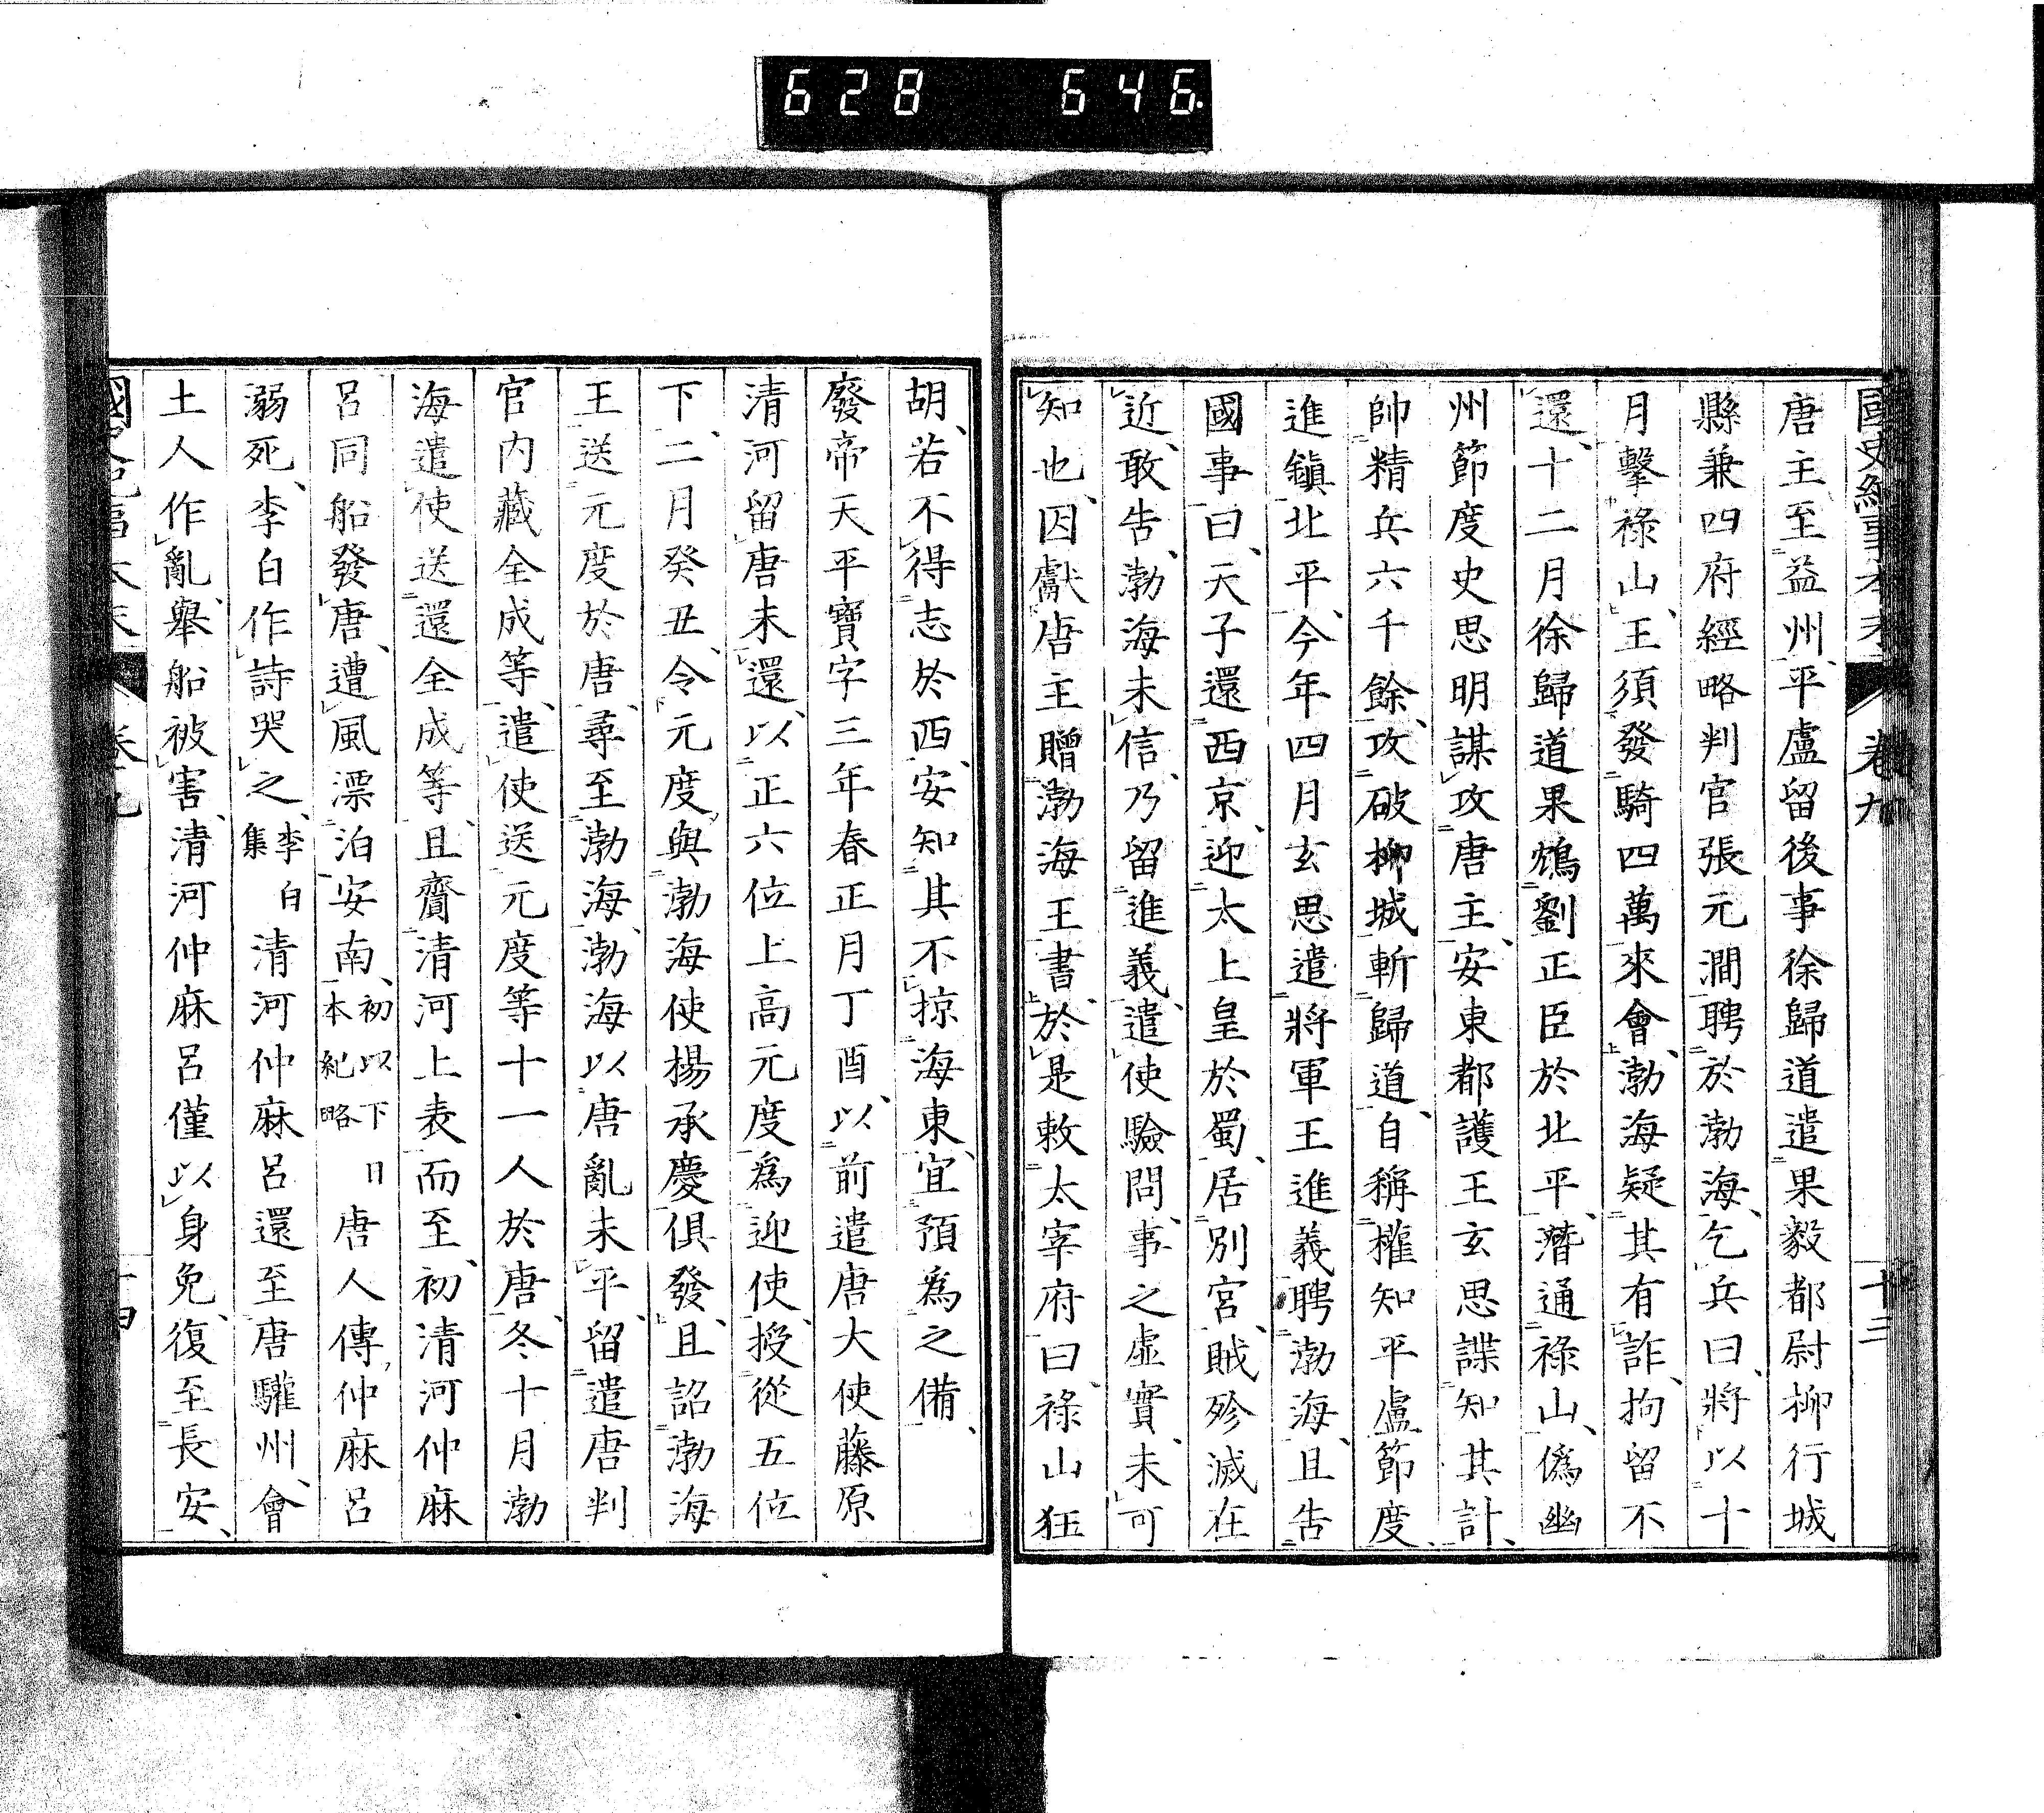 628 646
國史紀事本末 卷九 十三
唐主至益州、平盧留後事徐歸道遣果毅都尉柳行城
縣兼四府經略判官張元澗聘於渤海、乞兵曰、將以十
月擊祿山、王須發騎四萬來會、渤海疑其有詐、拘留不
還、十二月徐歸道果鴆劉正臣於北平、潛通祿山、僞幽
州節度史思明謀攻唐主、安東都護王玄思諜知其計、
帥精兵六千餘、攻破柳城斬歸道、自稱權知平盧節度、
進鎭北平、今年四月玄思遣將軍王進義聘渤海、且告
國事曰、天子還西京、迎太上皇於蜀、居別宮、賊殄滅在
近、敢告、渤海未信、乃留進義、遣使驗問、事之虛實、未可
知也、因獻唐主贈渤海王書、於是敕太宰府曰、祿山狂
胡、若不得志於西、安知其不掠海東、宜預爲之備、
廢帝天平寶字三年春正月丁酉、以前遣唐大使藤原
清河留唐未還、以正六位上高元度爲迎使、授從五位
下、二月癸丑、令元度與渤海使楊承慶俱發、且詔渤海
王送元度於唐、尋至渤海、渤海以唐亂未平、留遣唐判
官內藏全成等、遣使送元度等十一人於唐、冬十月渤
海遣使送還全成等、且齎清河上表而至、初清河仲麻
呂同船發唐、遭風漂泊安南、初以下日本紀略唐人傳、仲麻呂
溺死、李白作詩哭之、李白集清河仲麻呂還至唐驩州、會
土人作亂、擧船被害、清河仲麻呂僅以身免、復至長安、
卷九 十四